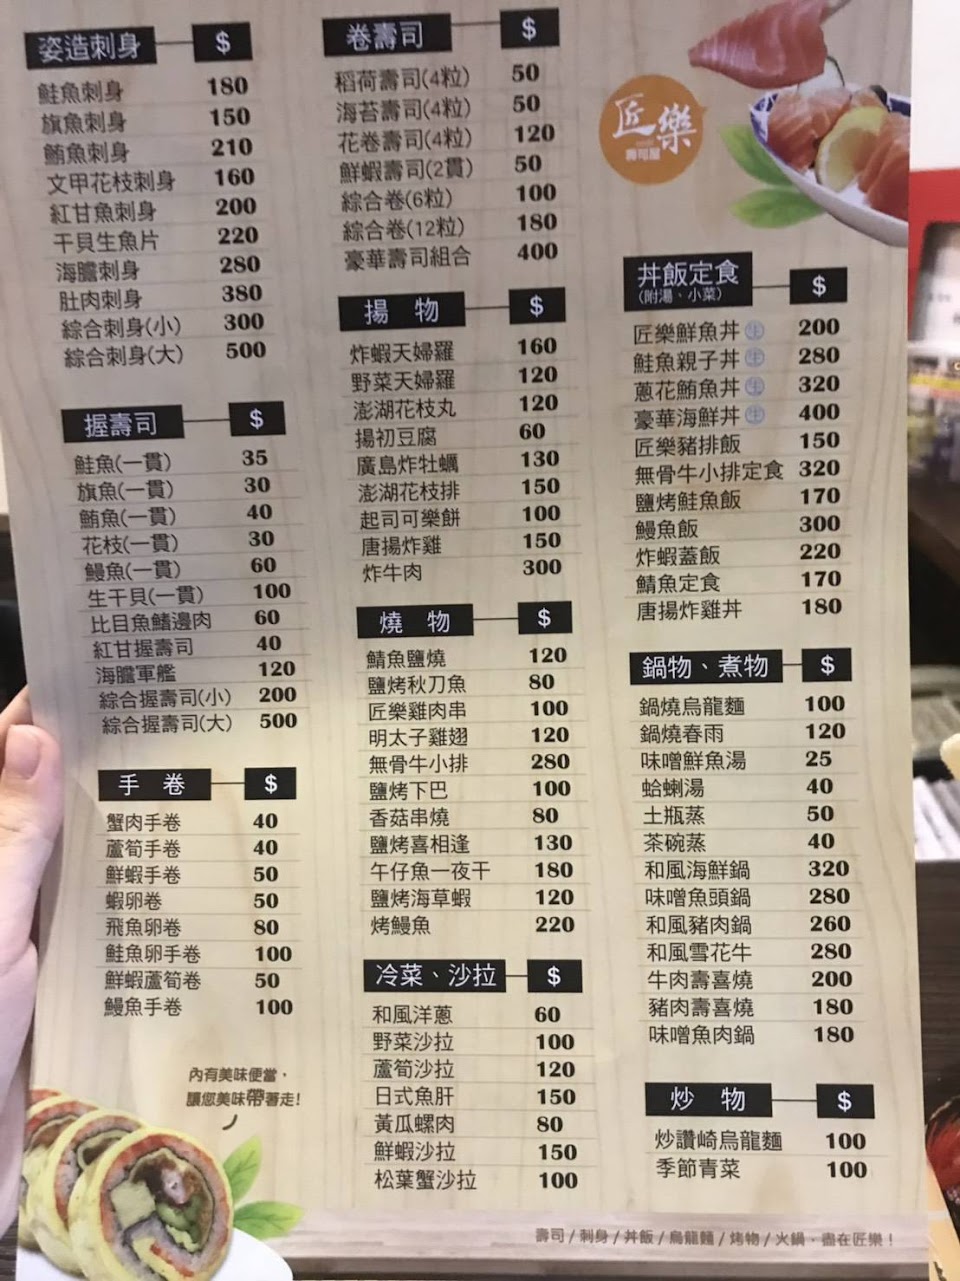 姿造刺身 $
鮭魚刺身 180
旗魚刺身 150
鮪魚刺身 210
文甲花枝刺身 160
紅甘魚刺身 200
干貝生魚片 220
海膽刺身 280
肚肉刺身 380
綜合刺身(小) 300
綜合刺身(大) 500
握壽司 $
鮭魚(一貫) 35
旗魚(一貫) 30
鮪魚(一貫) 40
花枝(一貫) 30
鰻魚(一貫) 60
生干貝(一貫) 100
比目魚鰭邊肉 60
紅甘握壽司 40
海膽軍艦 120
綜合握壽司(小) 200
綜合握壽司(大) 500
手 卷 $
蟹肉手卷 40
蘆筍手卷 40
鮮蝦手卷 50
蝦卵卷 50
飛魚卵卷 80
鮭魚卵手卷 100
鮮蝦蘆筍卷 50
鰻魚手卷 100
內有美味便當，
讓您美味帶著走!
卷壽司 $
稻荷壽司(4粒) 50
海苔壽司(4粒) 50
花卷壽司(4粒) 120
鮮蝦壽司(2貫) 50
綜合卷(6粒) 100
綜合卷(12粒) 180
豪華壽司組合 400
揚 物 $
炸蝦天婦羅 160
野菜天婦羅 120
澎湖花枝丸 120
揚初豆腐 60
廣島炸牡蠣 130
澎湖花枝排 150
起司可樂餅 100
唐揚炸雞 150
炸牛肉 300
燒 物 $
鯖魚鹽燒 120
鹽烤秋刀魚 80
匠樂雞肉串 100
明太子雞翅 120
無骨牛小排 280
鹽烤下巴 100
香菇串燒 80
鹽烤喜相逢 130
午仔魚一夜干 180
鹽烤海草蝦 120
烤鰻魚 220
冷菜、沙拉 $
和風洋蔥 60
野菜沙拉 100
蘆筍沙拉 120
日式魚肝 150
黃瓜螺肉 80
鮮蝦沙拉 150
松葉蟹沙拉 100
匠樂
壽司屋
丼飯定食 $
(附湯、小菜)
匠樂鮮魚丼 生 200
鮭魚親子丼 生 280
蔥花鮪魚丼 生 320
豪華海鮮丼 生 400
匠樂豬排飯 150
無骨牛小排定食 320
鹽烤鮭魚飯 170
鰻魚飯 300
炸蝦蓋飯 220
鯖魚定食 170
唐揚炸雞丼 180
鍋物、煮物 $
鍋燒烏龍麵 100
鍋燒春雨 120
味噌鮮魚湯 25
蛤蜊湯 40
土瓶蒸 50
茶碗蒸 40
和風海鮮鍋 320
味噌魚頭鍋 280
和風豬肉鍋 260
和風雪花牛 280
牛肉壽喜燒 200
豬肉壽喜燒 180
味噌魚肉鍋 180
炒 物 $
炒讚崎烏龍麵 100
季節青菜 100
壽司/刺身/丼飯/烏龍麵/烤物/火鍋，盡在匠樂！